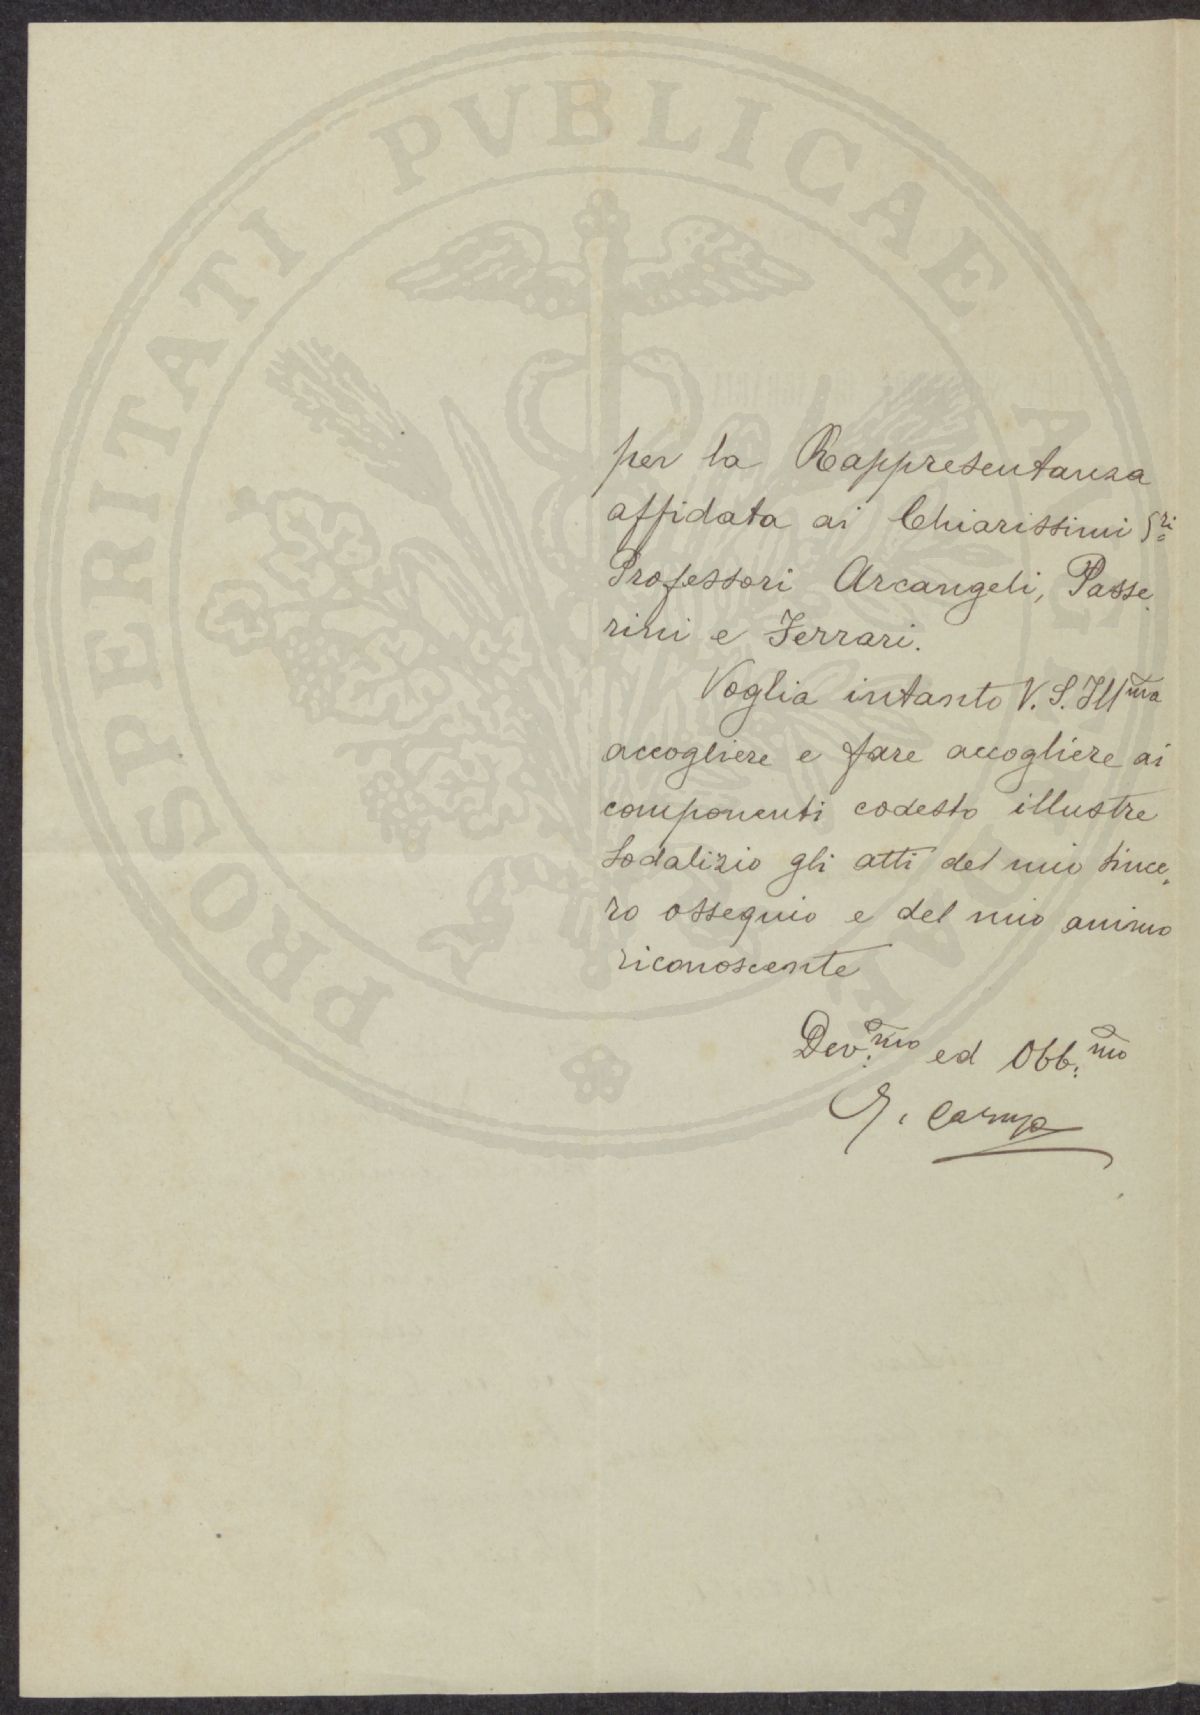 PROSPERITATI PVBLICAE
per la Rappresentanza
affidata ai Chiarissimi S.ri
Professori Arcangeli, Passe
rini e Ferrari.
Voglia intanto V. S. Ill.ma
accogliere e fare accogliere ai
componenti codesto illustre
Sodalizio gli atti del mio since,
ro ossequio e del mio animo
riconoscente
Dev.mo ed Obb.mo